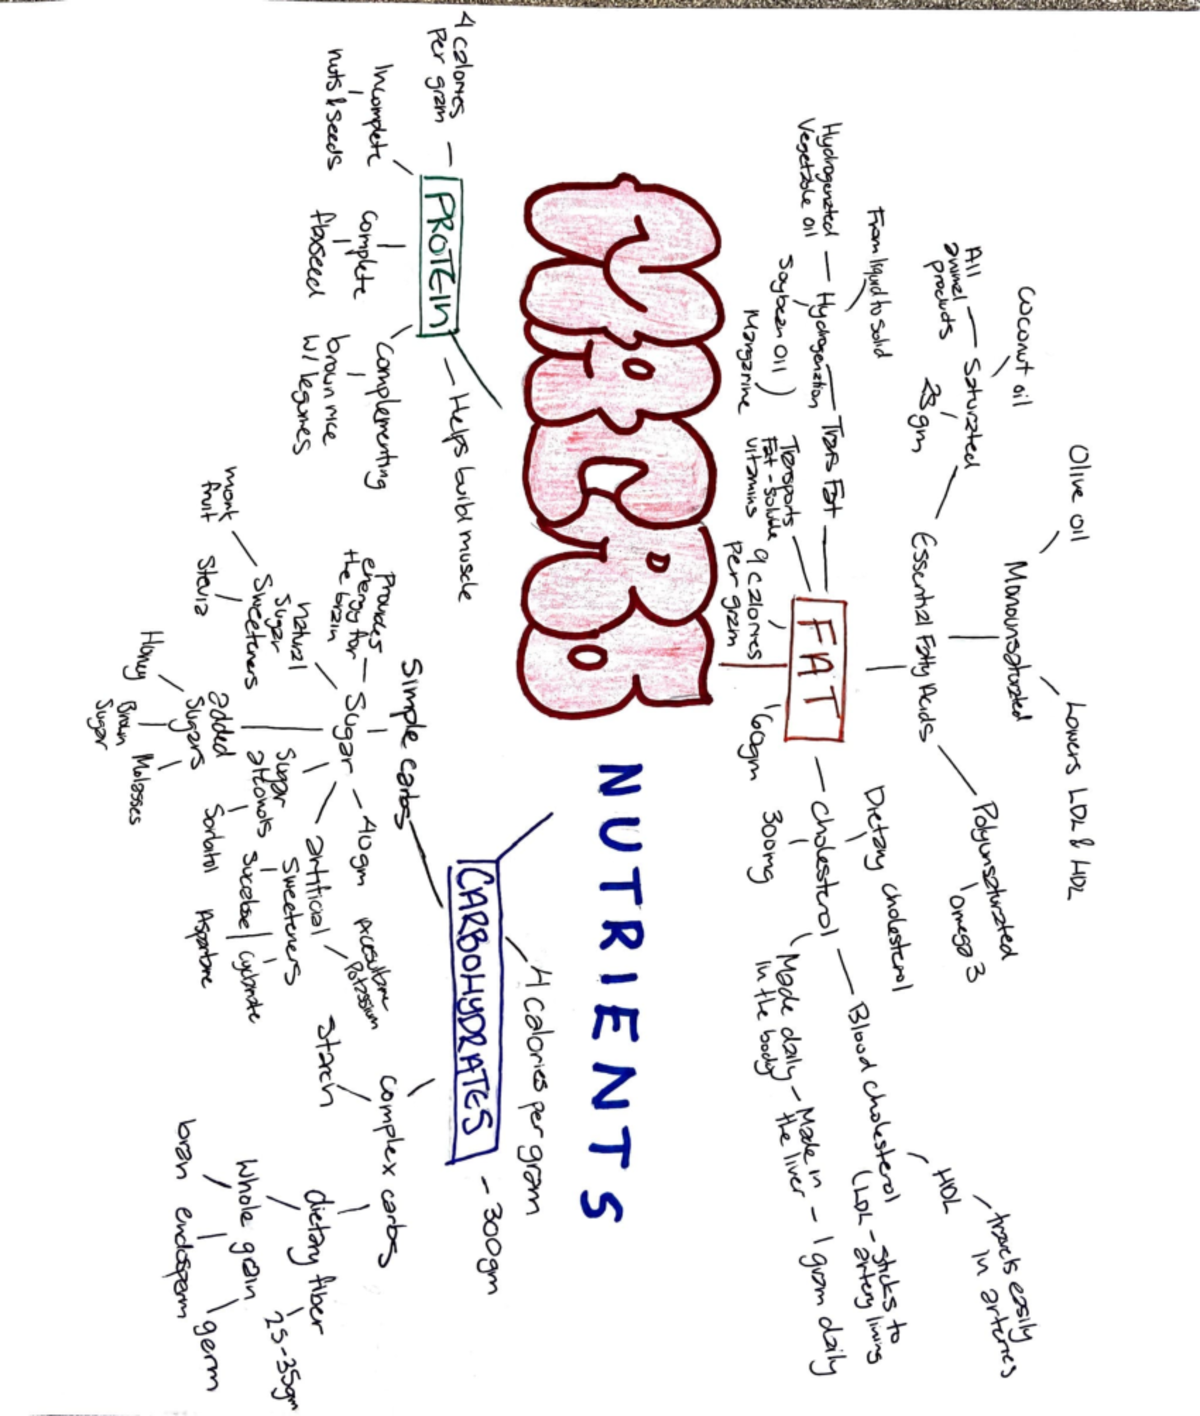 MACRO
NUTRIENTS
FAT
9 calories
per gram
60gm
Transports
Fat-soluble
vitamins
Trans Fat
Hydrogenation
From liquid to solid
Hydrogenated
Vegetable oil
Soybean oil
Margarine
Essential Fatty Acids
Saturated
All
animal
products
Coconut oil
Monounsaturated
Olive oil
Lowers LDL & HDL
Polyunsaturated
omega 3
cholesterol
300mg
Dietary cholesterol
Blood cholesterol
HDL
travels easily
in arteries
LDL - sticks to
artery lining
Made daily - Made in - 1 gram daily
in the body
the liver
PROTEIN
4 calories
per gram
Incomplete
nuts & seeds
complete
flaxseed
Complementing
brown rice
w/ legumes
Helps build muscle
CARBOHYDRATES
4 calories per gram
300gm
Simple carbs
Sugar
Provides
energy for
the brain
40gm
natural
sugar
Sweeteners
monk
fruit
Stevia
added
Sugars
Honey
Brown
Sugar
Molasses
Sugar
alcohols
Sorbitol
artificial
Sweeteners
Potassium
Aspartame
complex carbs
Starch
dietary fiber
25-35gm
Whole grain
bran
endosperm
germ